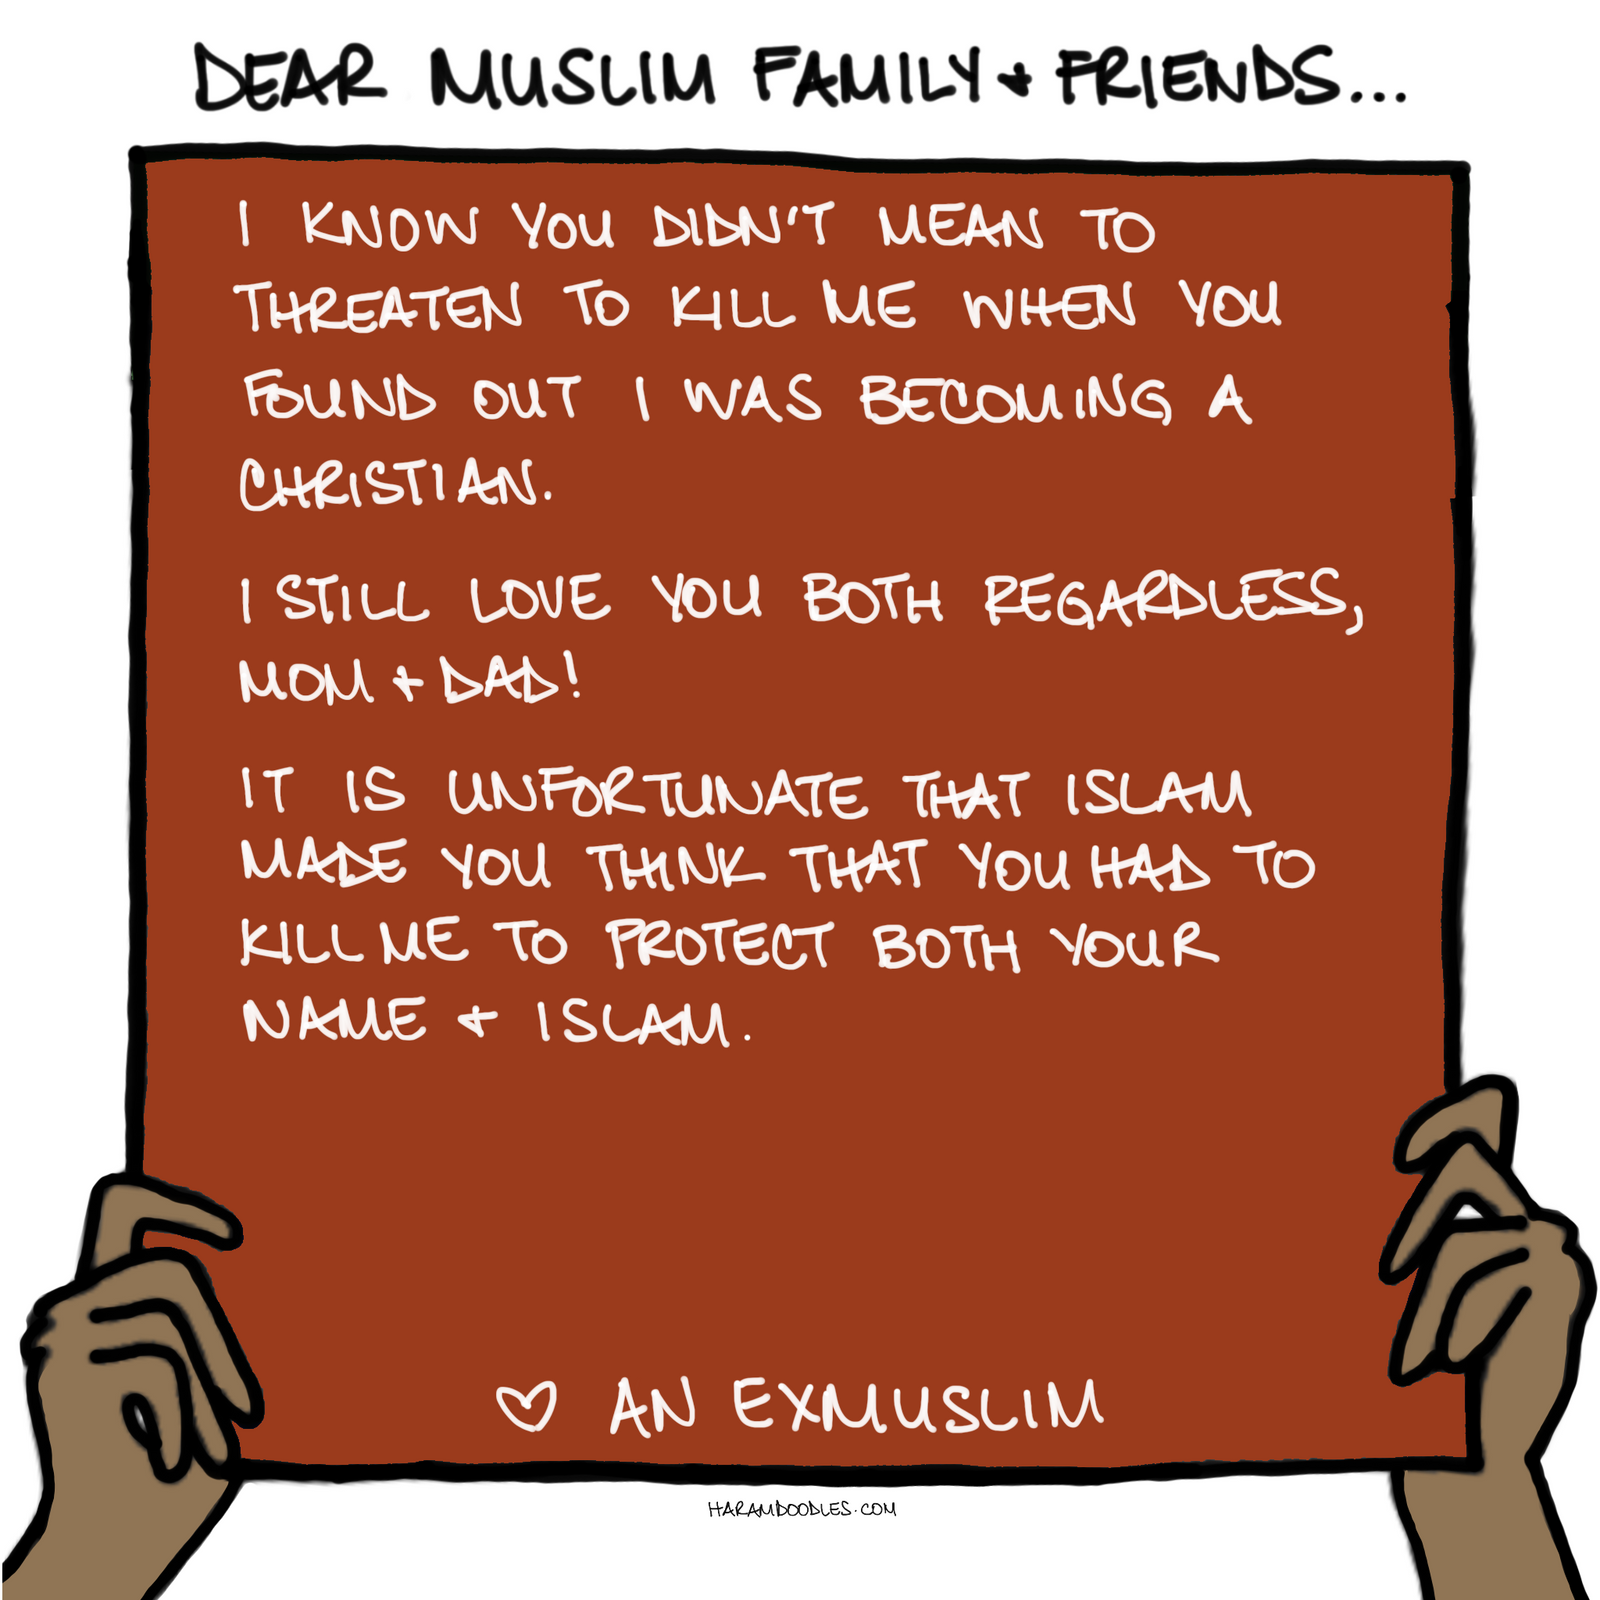 DEAR MUSLIM FAMILY & FRIENDS...
I KNOW YOU DIDN'T MEAN TO
THREATEN TO KILL ME WHEN YOU
FOUND OUT I WAS BECOMING A
CHRISTIAN.
I STILL LOVE YOU BOTH REGARDLESS,
MOM & DAD!
IT IS UNFORTUNATE THAT ISLAM
MADE YOU THINK THAT YOU HAD TO
KILL ME TO PROTECT BOTH YOUR
NAME & ISLAM.
♡ AN EXMUSLIM
HARAMDOODLES.COM